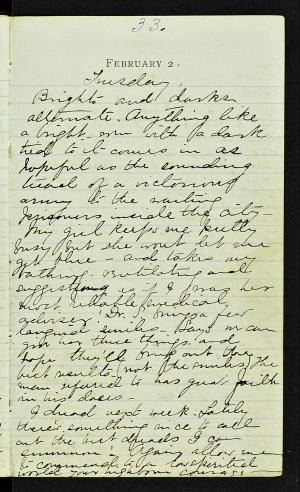 33.
FEBRUARY 2.
Tuesday.
Brights and darks
alternate. Anything like
a bright one with a dark
tied to it comes in as
hopeful as the sounding
tread of a victorious
army to the waiting
prisoners inside the city—
My girl keeps me pretty
busy but she won't let me
get blue — and takes my
bathing - ventilating and
suggesting as if I was her
most reliable medical
adviser. Dr. J brings a few
language smiles. Says we can
give her these things and
hope they'll bring out the
best results (not the smiles) The
man referred to has great faith
in his doses.
I dread next week. Lately
there's something nice to call
out the best dreads I can
summon. Again, allow me
to commend to a
world your courage